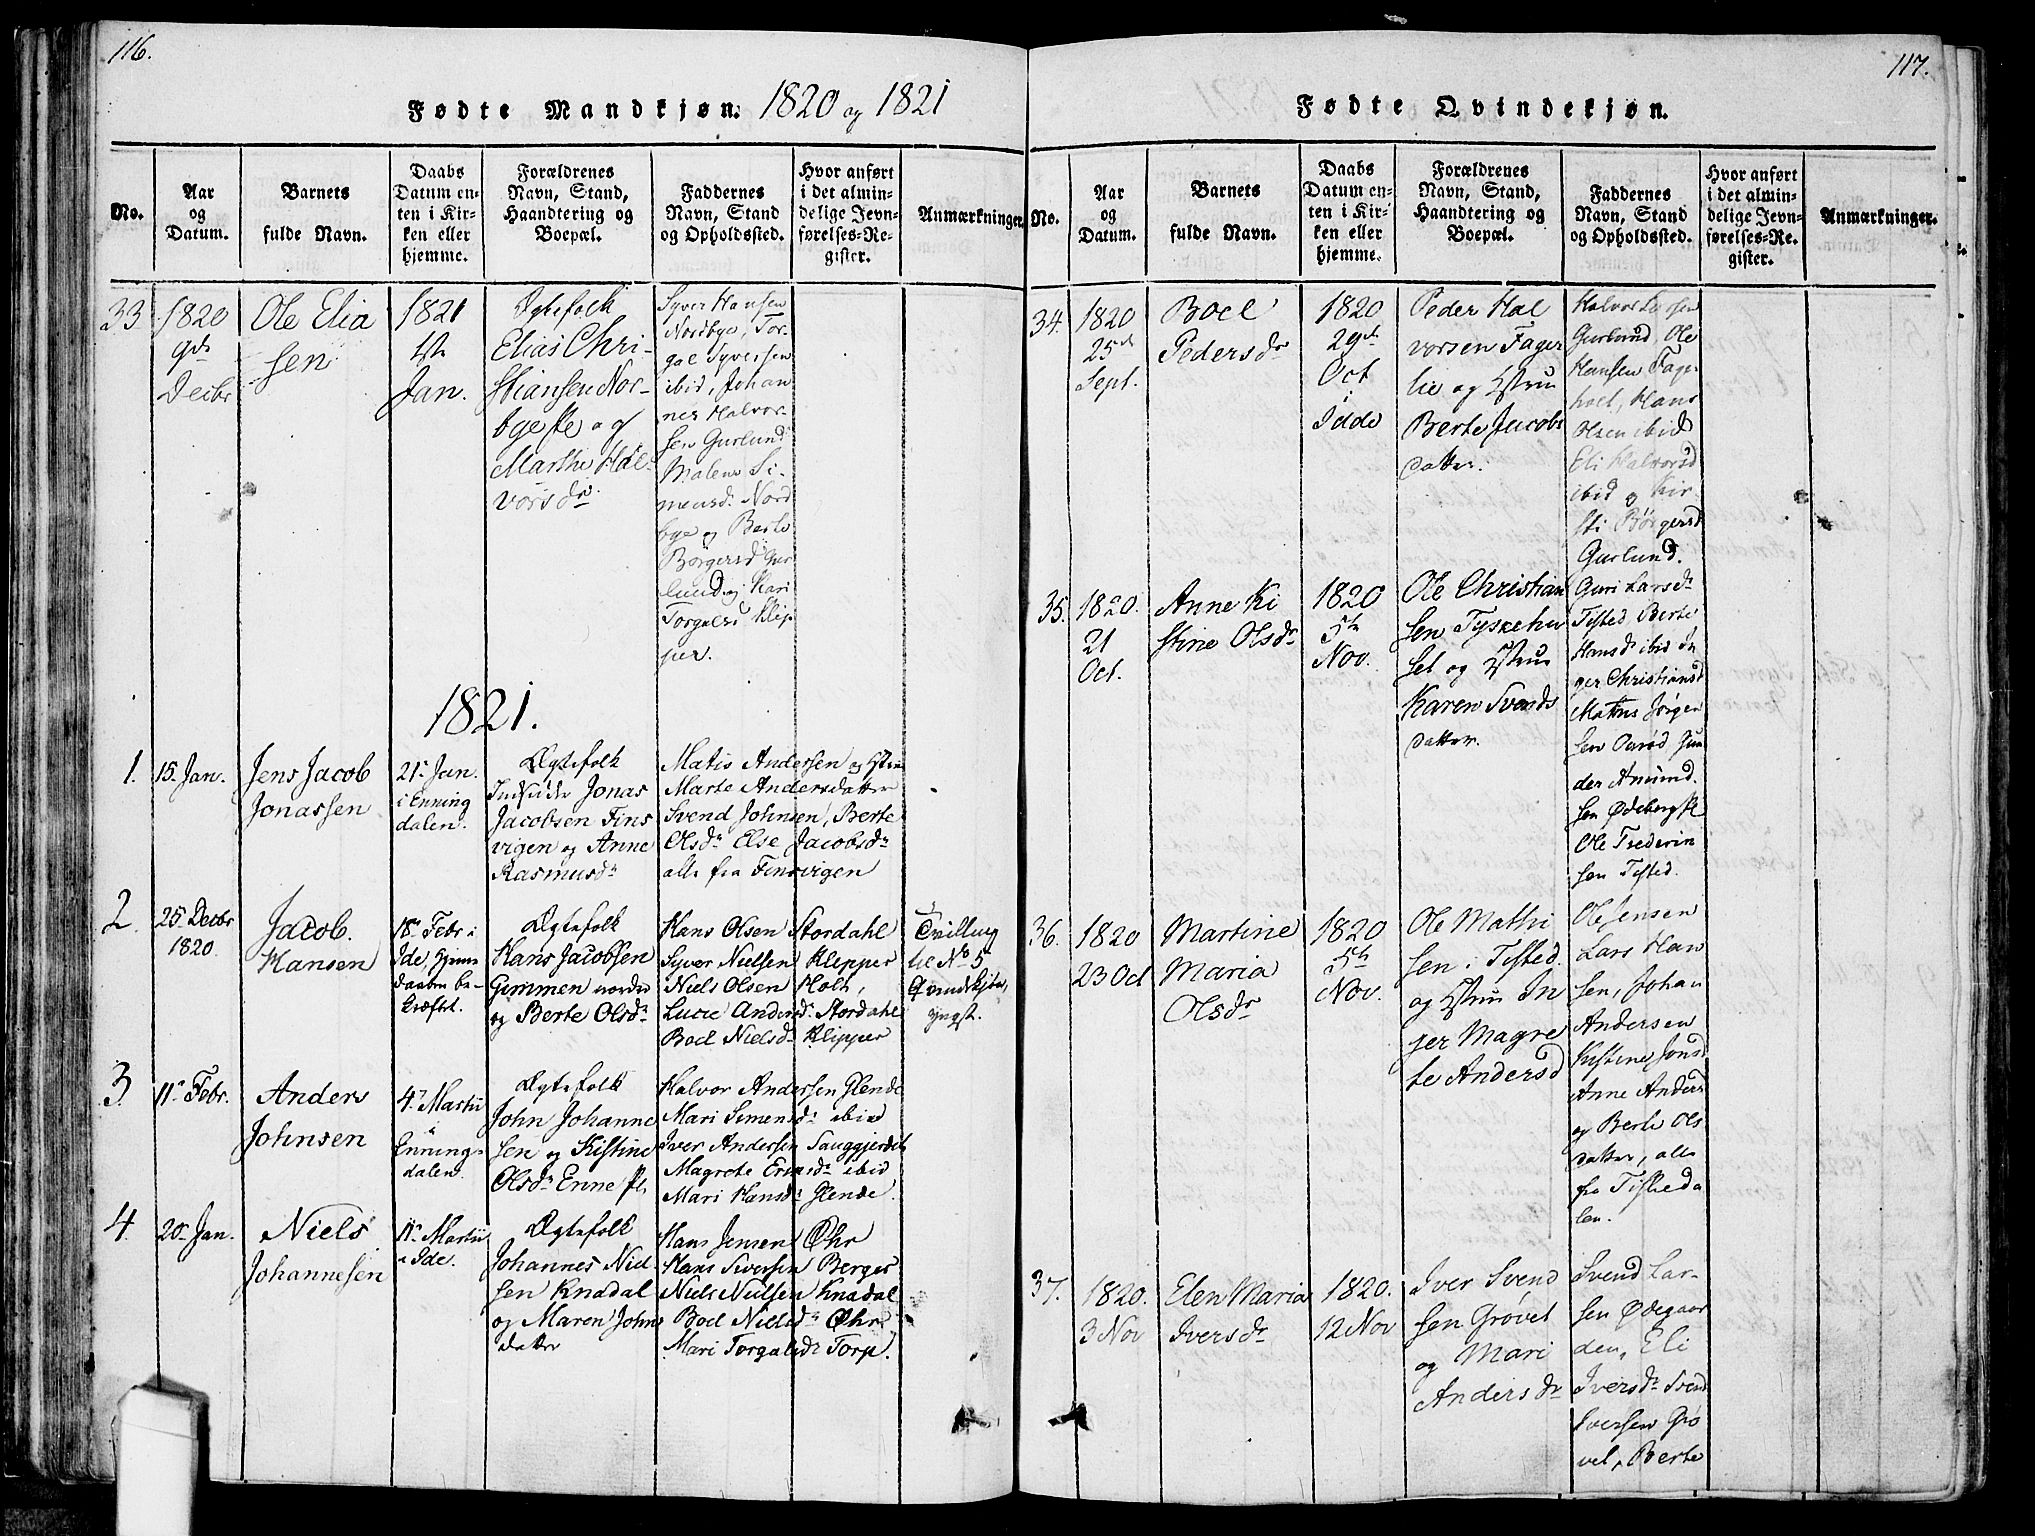 116.
Fødte Mandkjøn. 1820 og 1821
No.
Aar
og
Datum.
Barnets
fulde Navn.
Daabs
Datum en-
ten i Kir-
ken eller
hjemme.
Forældrenes
Navn, Stand,
Haandtering og
Boepæl.
Faddernes
Navn, Stand
og Opholdssted.
Hvor anført
i det almin-
delige Jevn-
førelses-Re-
gister.
Anmærkninger.
33
1820
9de
Decbr
Ole Elia
sen
1821
1ste
Jan.
Ægtefolk
Elias Chri-
stiansen Nor-
bye og
Marthe Hal-
vorsdr
Syver Hansen
Nordbye, Tor-
gal Syversen
ibid, Johan
nes Halvor-
sen Gurlund
Malene Si-
mensd. Nord
bye og Berte
Børgersd Gur
lund og Kari
Torgalsd Klep
per.
1821.
1.
15. Jan.
Jens Jacob
Jonassen
21. Jan.
i Enning
dalen.
Ægtefolk
Inderste Jonas
Jacobsen Fins
vigen og Anne
Rasmusdr
Matis Andersen og Hstru
Marte Andersdatter
Svend Johnsen, Berte
Olsdr Else Jacobsdr
alle fra Finsvigen
2.
25 Decbr
1820.
Jacob
Hansen
18 Febr i
Ide, hjemme
daaben be-
kræftet.
Ægtefolk
Hans Jacobsen
Gimmen nordre
og Berte Olsdr
Hans Olsen Stordahl
Syver Nielsen Klepper
Niels Olsen Holt,
Lucie Andersd. Stordahl
Boel Nielsdr Klipper
Tvilling
til No 5
Qvindekjøn,
yngst.
3.
11 Febr.
Anders
Johnsen
4 Martii
i
Ennings-
dalen.
Ægtefolk
John Johanne
sen og Kistine
Olsdr Enne
Halvor Andersen Glende
Mari Simensdr ibid
Iver Andersen Sauggjerdet
Magrete Ersdr ibid
Mari Hansdr Glende
4.
20 Jan.
Niels
Johannesen
11 Martii
i Ide.
Ægtefolk
Johannes Niel
sen Knadal
og Maren Johns
datter
Hans Jensen Øhr
Hans Siversen Berger
Niels Nielsen Knadal
Boel Nielsdr Øhr
Mari Torgalsdr Torp.
117.
Fødte Qvindekjøn.
No.
Aar
og
Datum.
Barnets
fulde Navn.
Daabs
Datum en-
ten i Kir-
ken eller
hjemme.
Forældrenes
Navn, Stand,
Haandtering og
Boepæl.
Faddernes
Navn, Stand
og Opholdssted.
Hvor anført
i det almin-
delige Jevn-
førelses-Re-
gister.
Anmærkninger.
34.
1820
25de
Sept.
Boel
Pedersdr
1820
29de
Oct
i
Idde
Peder Hal
vorsen Fager
lie og Hstru
Berte Jacobs
datter.
Halvor
Gurlund, Ole
Hansen Fager
holt, Hans
Olsen ibid
Eli Halvorsd
ibid og Kir-
sti Børgersd
Gurlund.
35.
1820.
21
Oct.
Anne Ki
stine Olsdr
1820
5te
Nov.
Ole Christian
sen Tyskehu
set og Hstru
Karen Svends
datter.
Guri Larsdr
Tisted Berte
Hansdr ibid In
ger Christiansd
Matius Jørgen
sen Gun
der Amund.
sen Ødeberg
Ole Frederik
sen Tisted.
36.
1820
23 Oct
Martine
Maria
Olsdr
1820
5te
Nov.
Ole Mathi
sen i Tisted
og Hstru In
ger Magre
te Andersd
Ole Jensen
Lars Han
sen, Johan
Andersen
Kistine Jonsd
Anne Andersd
og Berte Ols
datter, alle
fra Tisteda
len.
37.
1820.
3 Nov
Elen Maria
Iversdr
1820.
12 Nov
Iver Svend
sen Grøvel
og Mari
Andersdr
Svend Lar-
sen Ødegaar
den, Eli
Iversdr Svend
Iversen Grø
vel, Berte